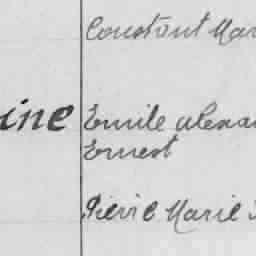 Constant Mar
ine Emile alexan
Ernest
Pierre Marie